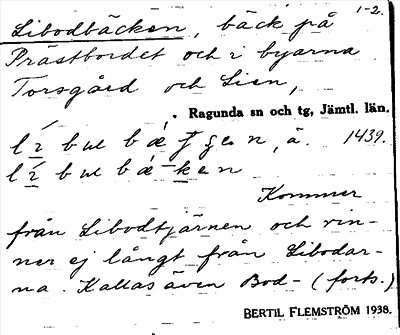 1-2.
Libodbäcken, bäck på
Prästbordet och i byarna
Torsgård och Lien,
Ragunda sn och tg, Jämtl. län.
1439.
Kommer
från Libodtjärnen och rin-
ner ej långt från Libodar-
na. Kallas även Bod- (forts.)
BERTIL FLEMSTRÖM 1938.